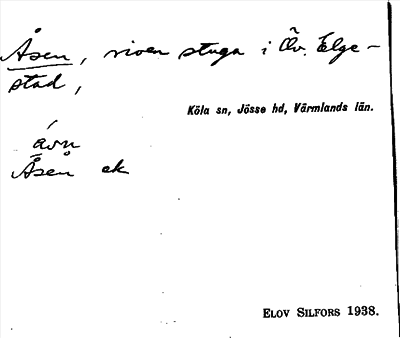 Åsen, riven stuga i Öv. Elge-
stad,
Köla sn, Jösse hd, Värmlands län.
Åsen ek
ELOV SILFORS 1938.